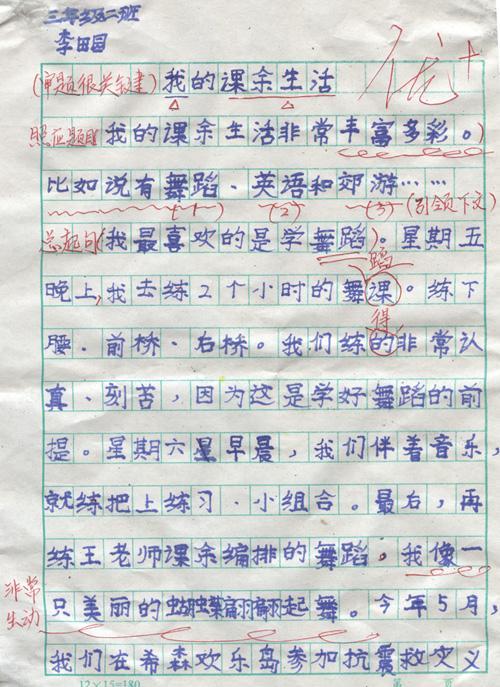 三年级二班
李田园
(审题很关键) 我的课余生活
优+
照应题目 我的课余生活非常丰富多彩。)
比如说有舞蹈、英语和郊游……
(1) (2) (3) (引领下文)
总起句 (我最喜欢的是学舞蹈)。星期五
蹈
晚上,我去练2个小时的舞课。练下
得
腰、前桥、右桥。我们练的非常认
真、刻苦，因为这是学好舞蹈的前
提。星期六星早晨，我们伴着音乐，
就练把上练习、小组合。最后，再
练王老师课余编排的舞蹈。我像一
非常生动 只美丽的蝴蝶翩翩起舞。今年5月，
我们在希森欢乐岛参加抗震救灾义
12×15=180 第 页